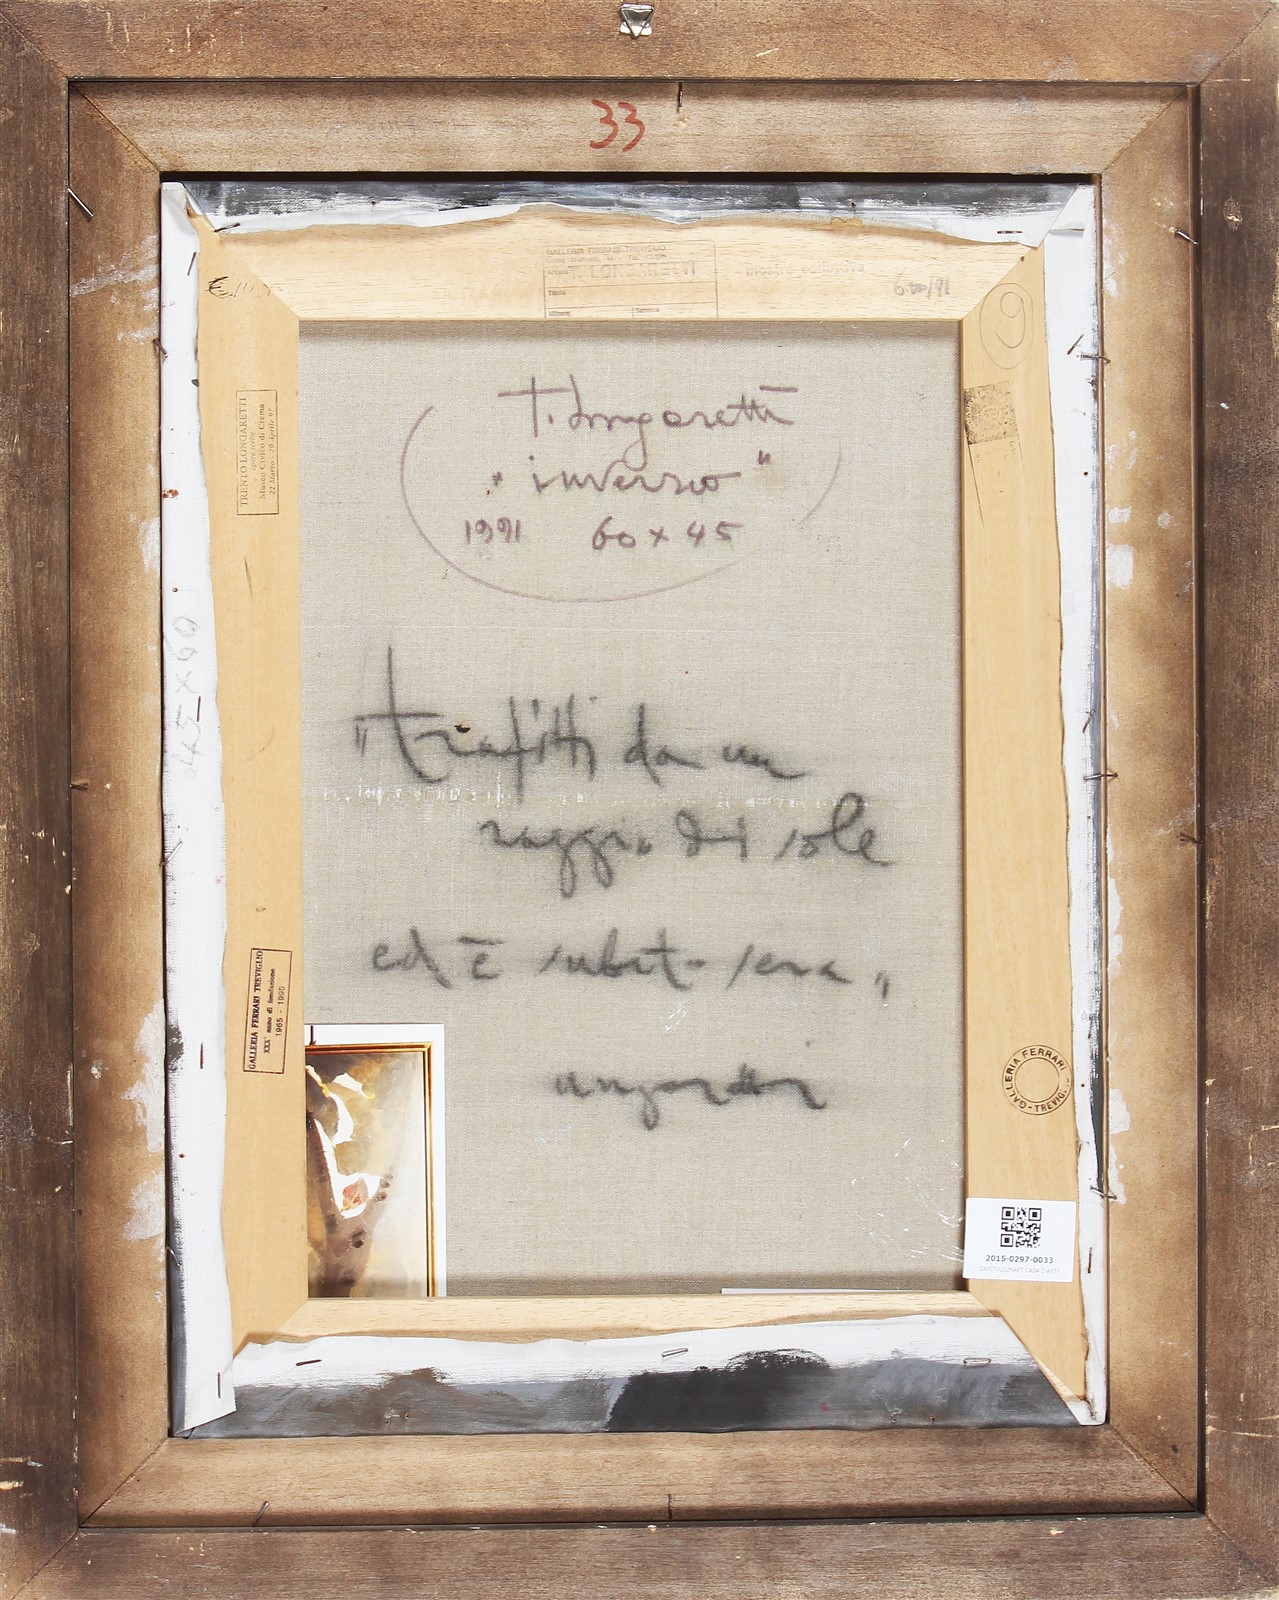 33
GALLERIA FERRARI TREVIGLIO
T. LONGARETTI
Titolo
Misure
Tecnica
mostra collettiva
9
TRENTO LONGARETTI
opere scelte
Museo Civico di Crema
22 Marzo - 20 Aprile 97
T. Longaretti
"inverno"
1991 60 x 45
45 x 60
"trafitti da un
raggio di sole
ed è subito sera"
ungaretti
GALLERIA FERRARI TREVIGLIO
XXX anno di fondazione
1965 - 1995
GALLERIA FERRARI - TREVIGLIO
2015-0297-0033
CAPITOLIUMART CASA D'ASTE